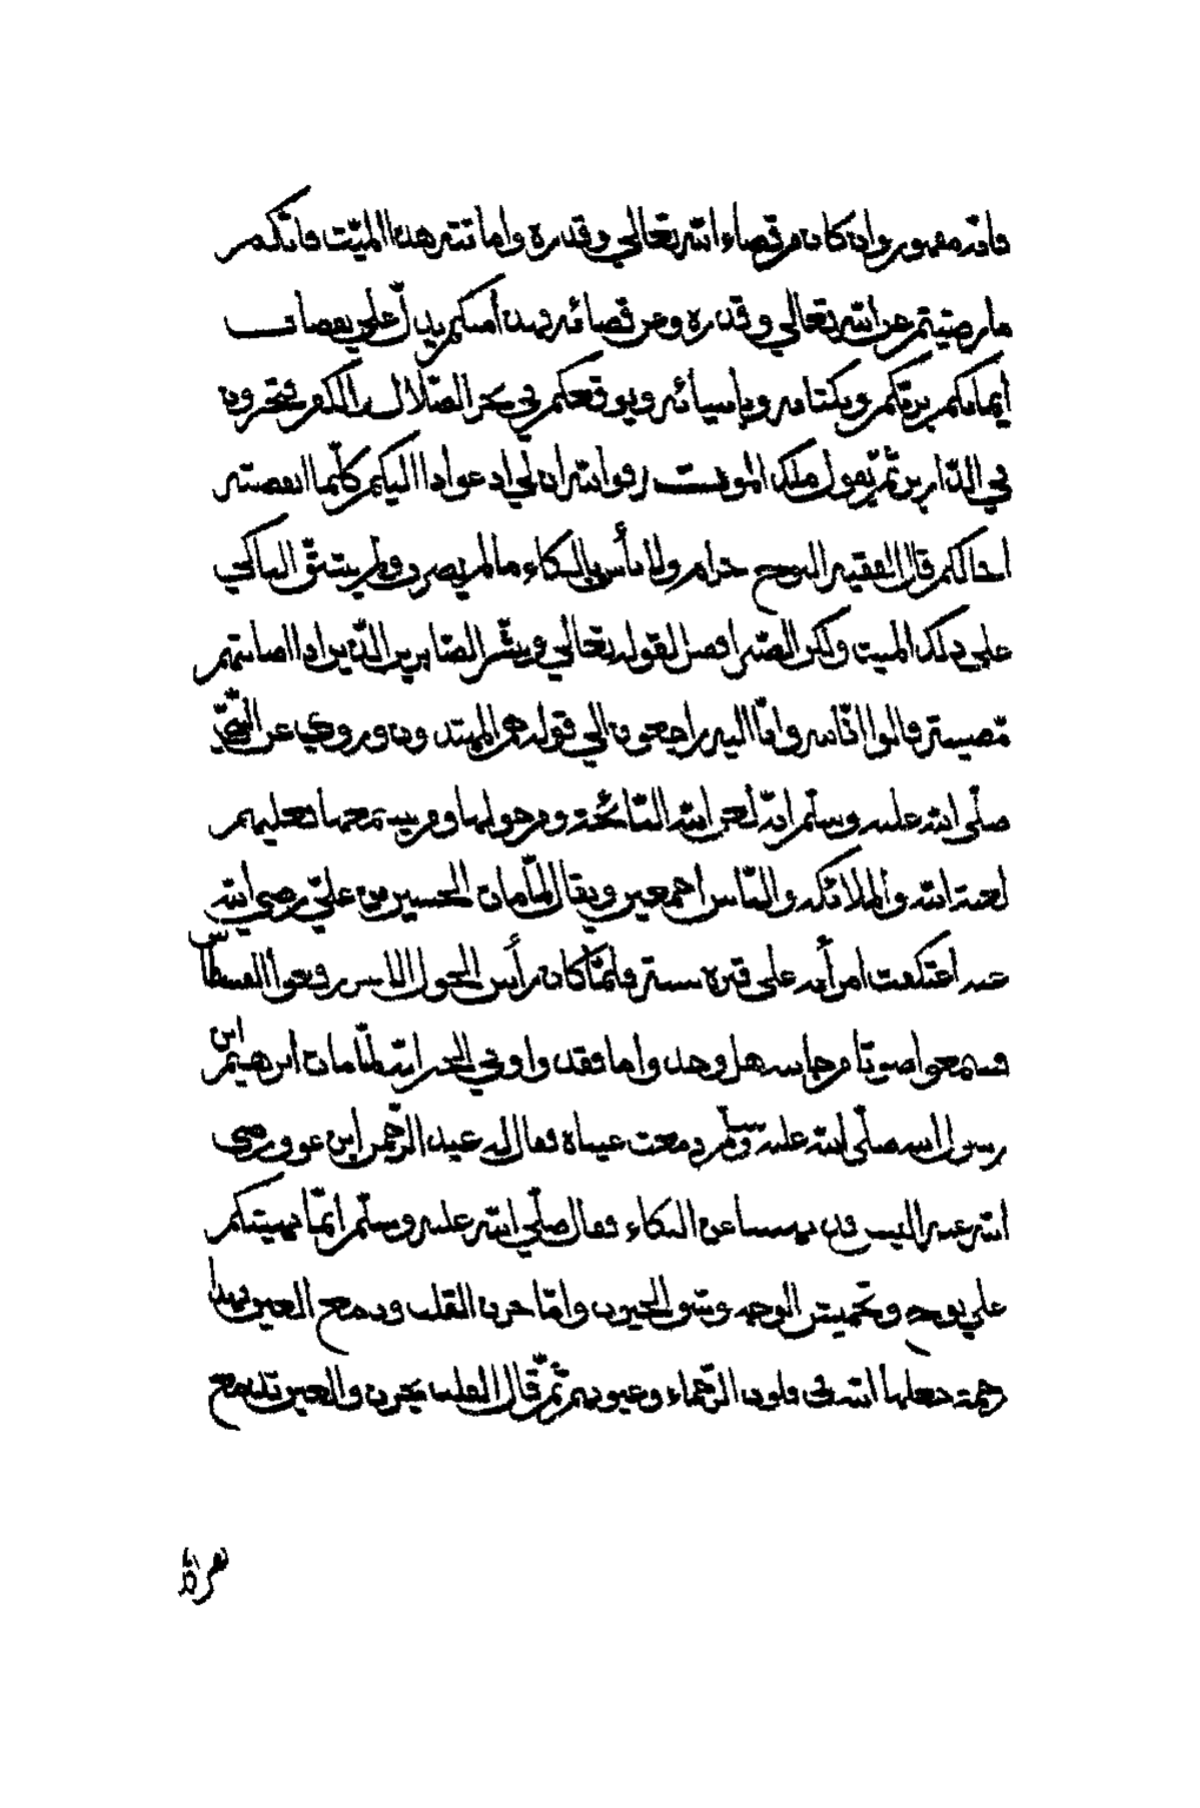 فانه مقهور وان كان من قضاء الله تعالى وقدره واما تتر هذا الميّت فانّكم
ما رضيتم عن الله تعالى وقدره وعن قضائه فهذا أمنكم يدلّ على نقصان
ايمانكم بربّكم وبكتابه وبانبيائه ويوقعكم في بحر الضّلال
في الدّارين ثمّ يقول ملك الموت فوالله ان لي اليكم كلّما
قال الفقيه النوح حرام ولا بأس بالبكاء ما لم يصرخ ولم يشقّ الباكي
على ذلك الميت ولكن الصّبر افضل لقوله تعالى وبشّر الصّابرين الّذين اذا اصابتهم
مّصيبة قالوا انّا لله وانّا اليه راجعون الى قوله هم المهتدون وروي عن النّبيّ
صلّى الله عليه وسلّم انّه لعن الله النّائحة ومن حولها ومن يستمعها فعليهم
لعنة الله والملائكة والنّاس اجمعين ويقال لمّا مات الحسين بن عليّ رضي الله
عنه اعتكفت امرأته على قبره سنة فلمّا كان رأس الحول رفعوا الفسطاس
فسمعوا صوتا من جانبه هل وجدوا ما فقدوا وفي الخبر انّه لمّا مات ابرهيم ابن
رسول الله صلّى الله عليه وسلّم دمعت عيناه فقال له عبد الرّحمن ابن عوف رضي
الله عنه اليس قد نهيتنا عن البكاء فقال صلّى الله عليه وسلّم انّما نهيتكم
على نوح وتخميش الوجه وشق الجيوب وامّا حزن القلب ودمع العين فهذا
رحمة جعلها الله في قلوب الرّحماء وعيونهم ثمّ قال القلب يحزن والعين تدمع